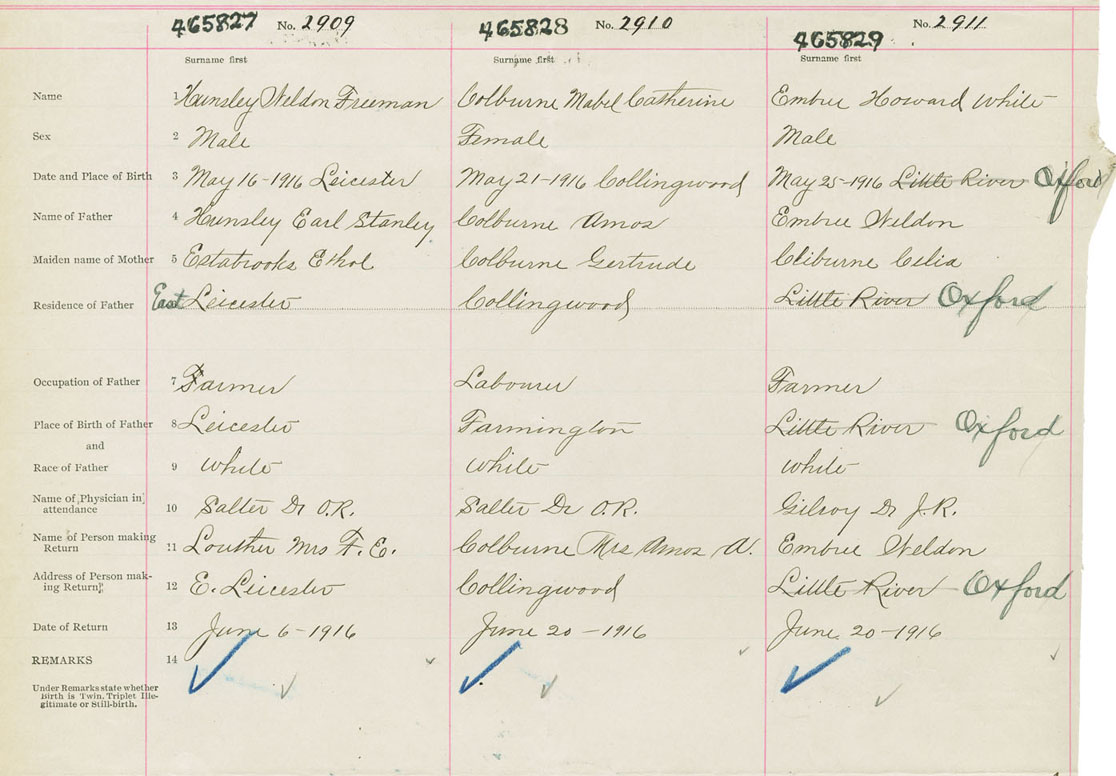 465827 No. 2909 465828 No. 2910 465829 No. 2911
Surname first Surname first Surname first
Name 1 Hunsley Weldon Freeman Colburne Mabel Catherine Embree Howard White
Sex 2 Male Female Male
Date and Place of Birth 3 May 16-1916 Leicester May 21-1916 Collingwood May 25-1916 Little River Oxford
Name of Father 4 Hunsley Earl Stanley Colburne Amos Embree Weldon
Maiden name of Mother 5 Estabrooks Ethel Colburne Gertrude Cliburne Celia
Residence of Father East Leicester Collingwood Little River Oxford
Occupation of Father 7 Farmer Labourer Farmer
Place of Birth of Father 8 Leicester Farmington Little River Oxford
and
Race of Father 9 White White White
Name of Physician in
attendance 10 Salter Dr O.R. Salter Dr O.R. Gilroy Dr J.R.
Name of Person making
Return 11 Louther Mrs F. E. Colburne Mrs Amos A. Embree Weldon
Address of Person mak-
ing Return 12 E. Leicester Collingwood Little River Oxford
Date of Return 13 June 6-1916 June 20-1916 June 20-1916
REMARKS 14
Under Remarks state whether
Birth is Twin. Triplet Ille-
gitimate or Still-birth.